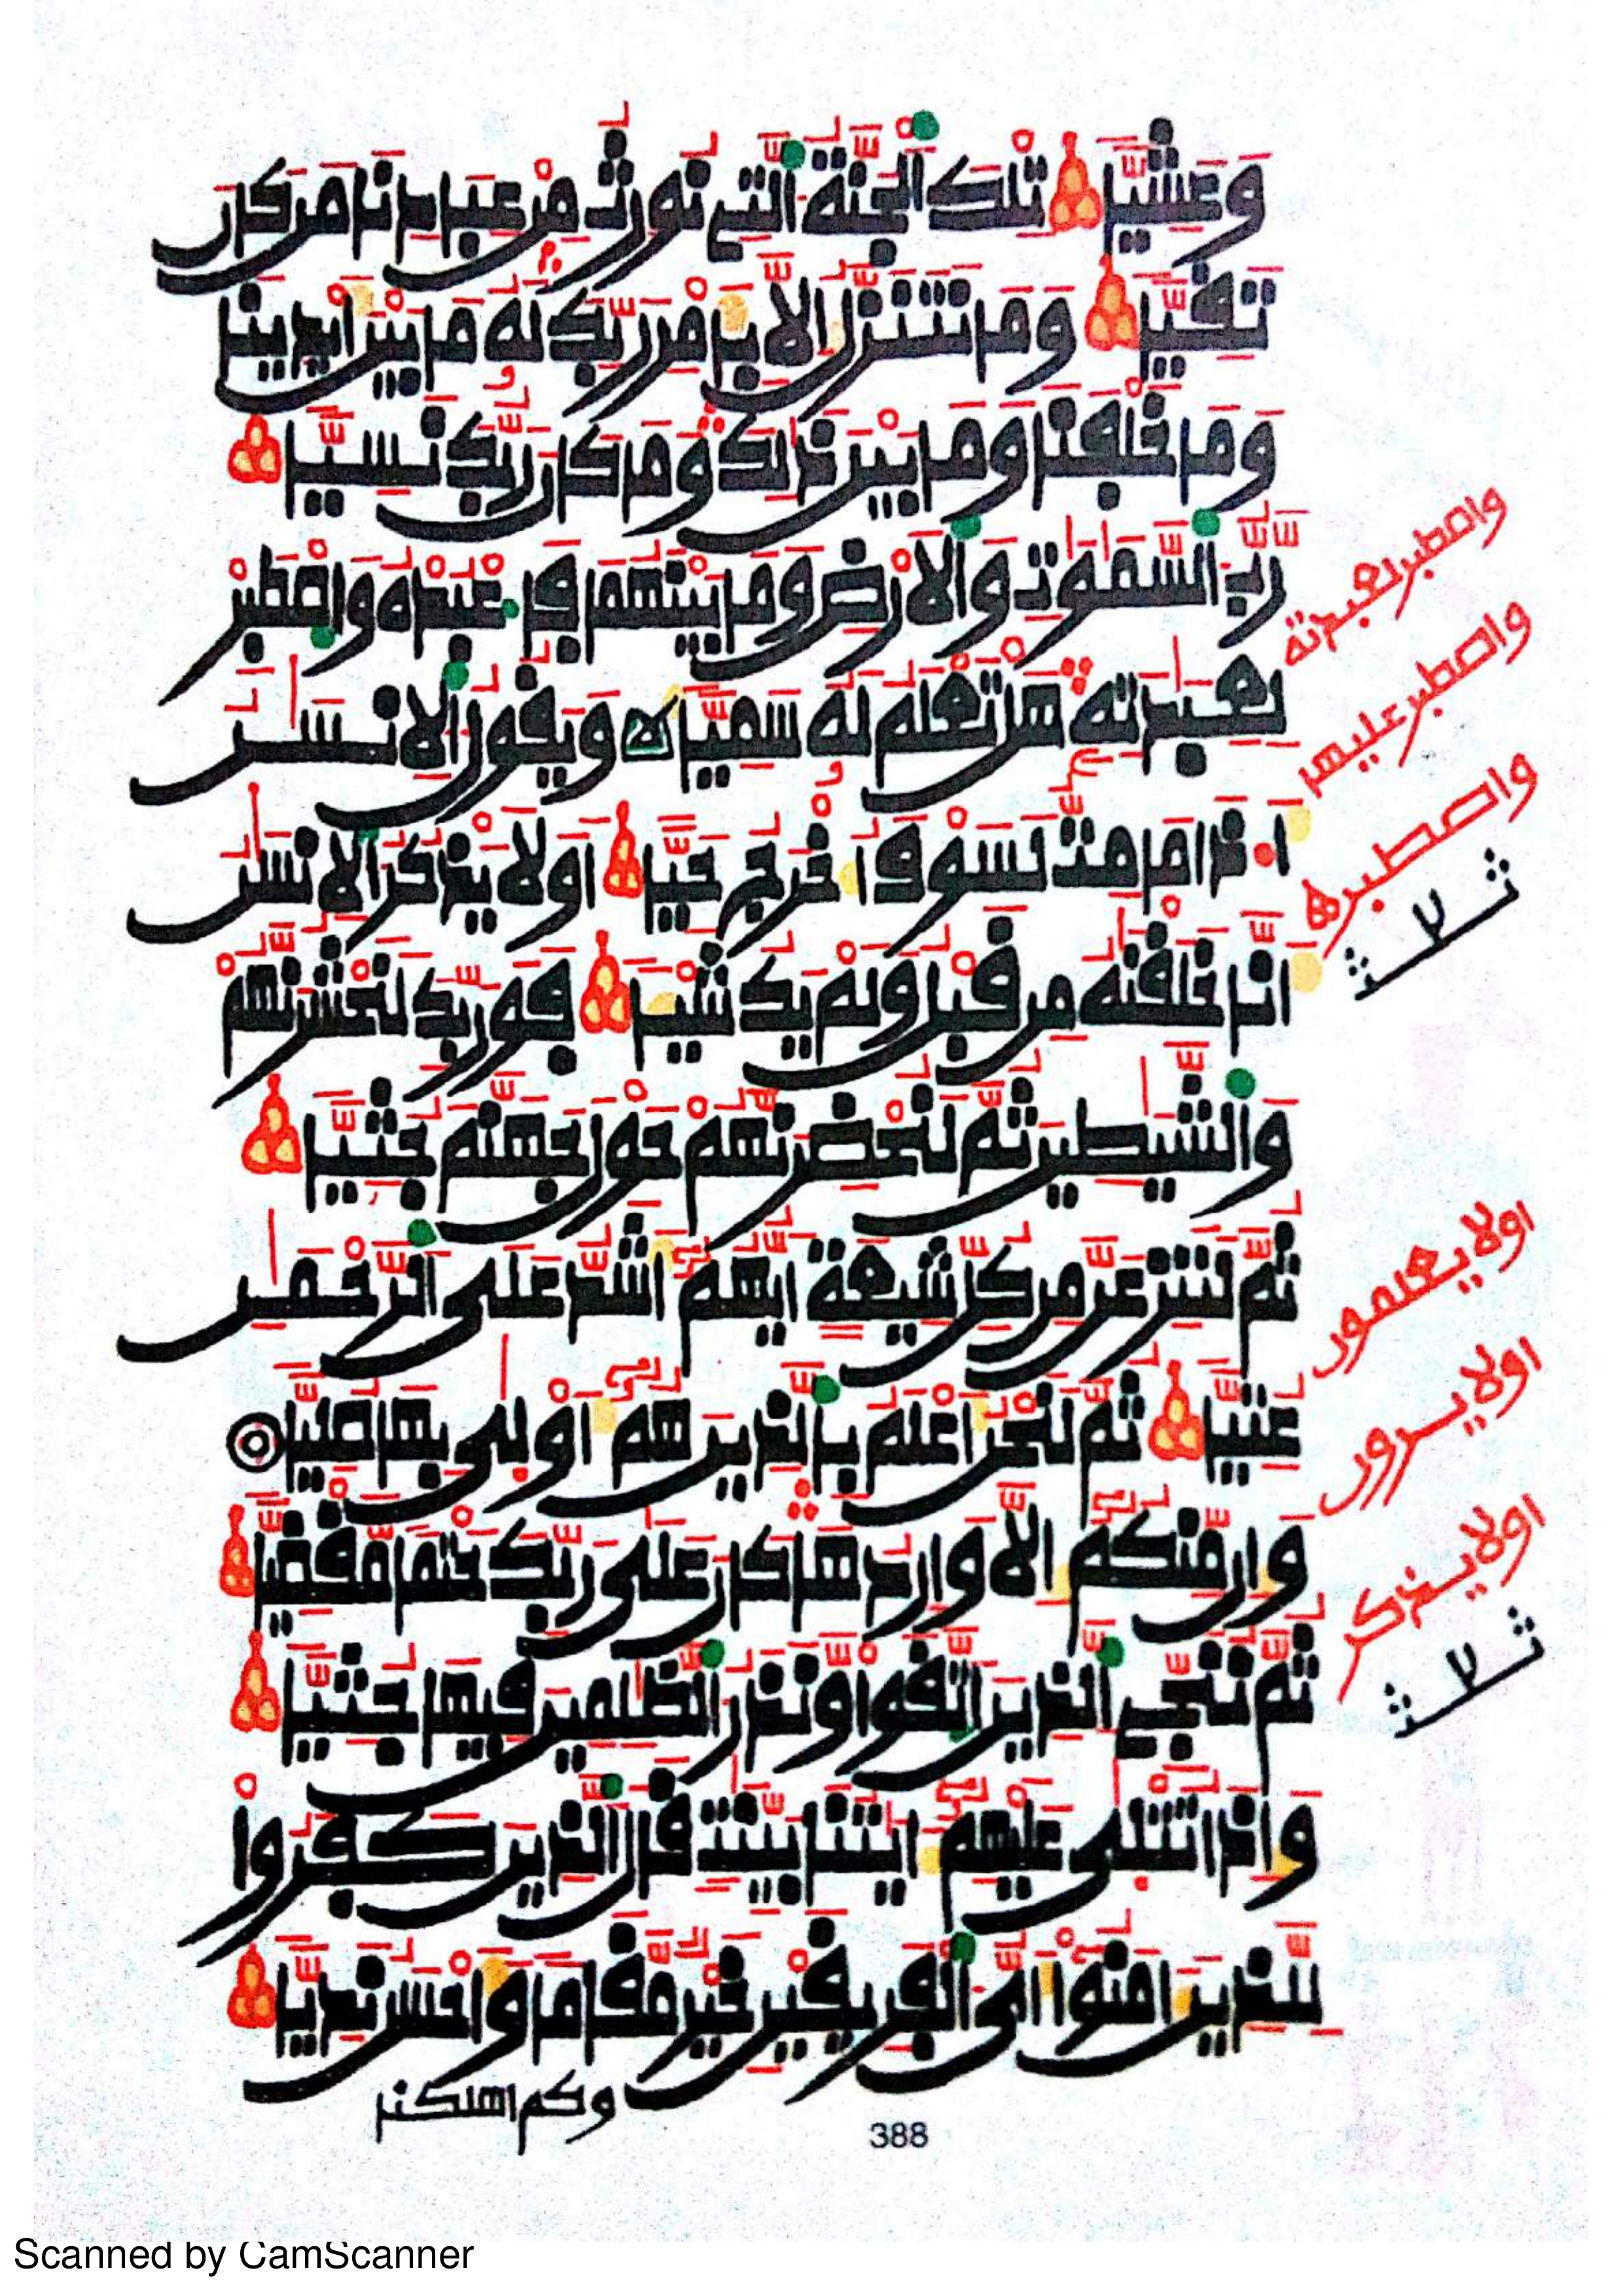 وَعَشِيّٗا تِلْكَ اَ۬لْجَنَّةُ اُ۬لتِے نُورِثُ مِنْ عِبَادِنَا مَن كَانَ
تَقِيّٗا وَمَا نَتَنَزَّلُ إِلَّا بِأَمْرِ رَبِّكَ لَهُۥ مَا بَيْنَ أَيْدِينَا
وَمَا خَلْفَنَا وَمَا بَيْنَ ذَٰلِكَ وَمَا كَانَ رَبُّكَ نَسِيّٗا
رَّبُّ اُ۬لسَّمَٰوَٰتِ وَالَارْضِ وَمَا بَيْنَهُمَا فَاعْبُدْهُ وَاصْطَبِرْ
لِعِبَٰدَتِهِۦ هَلْ تَعْلَمُ لَهُۥ سَمِيّٗا وَيَقُولُ اُ۬لِانسَٰنُ
أَ.ذَا مَا مِتُّ لَسَوْفَ أُخْرَجُ حَيّاً اَوَلَا يَذْكُرُ اُ۬لِانسَٰنُ
أَنَّا خَلَقْنَٰهُ مِن قَبْلُ وَلَمْ يَكُ شَيْـٔٗا فَوَرَبِّكَ لَنَحْشُرَنَّهُمْ
وَالشَّيَٰطِينَ ثُمَّ لَنُحْضِرَنَّهُمْ حَوْلَ جَهَنَّمَ جُثِيّٗا
ثُمَّ لَنَنزِعَنَّ مِن كُلِّ شِيعَةٍ اَيُّهُمُۥٓ أَشَدُّ عَلَى اَ۬لرَّحْمَٰنِ
عُتِيّٗا ثُمَّ لَنَحْنُ أَعْلَمُ بِالذِينَ هُمُۥٓ أَوْلَىٰ بِهَا صُلِيّٗا
وَإِن مِّنكُمُۥٓ إِلَّا وَارِدُهَا كَانَ عَلَىٰ رَبِّكَ حَتْماٗ مَّقْضِيّٗا
ثُمَّ نُنَجِّے اِ۬لذِينَ اَ۪تَّقَواْ وَّنَذَرُ اُ۬لظَّٰلِمِينَ فِيهَا جُثِيّٗا
وَإِذَا تُتْلَىٰ عَلَيْهِمُۥٓ ءَايَٰتُنَا بَيِّنَٰتٖ قَالَ اَ۬لذِينَ كَفَرُواْ
لِلذِينَ ءَامَنُوٓاْ أَيُّ اُ۬لْفَرِيقَيْنِ خَيْرٞ مَّقَاماٗ وَأَحْسَنُ نَدِيّٗا
وكم اهلكنا
388
واصطبر لعبدته
واصطبر عليها
واصطبرها
اولا يعلمون
اولا يرون
اولا يذكر
Scanned by CamScanner